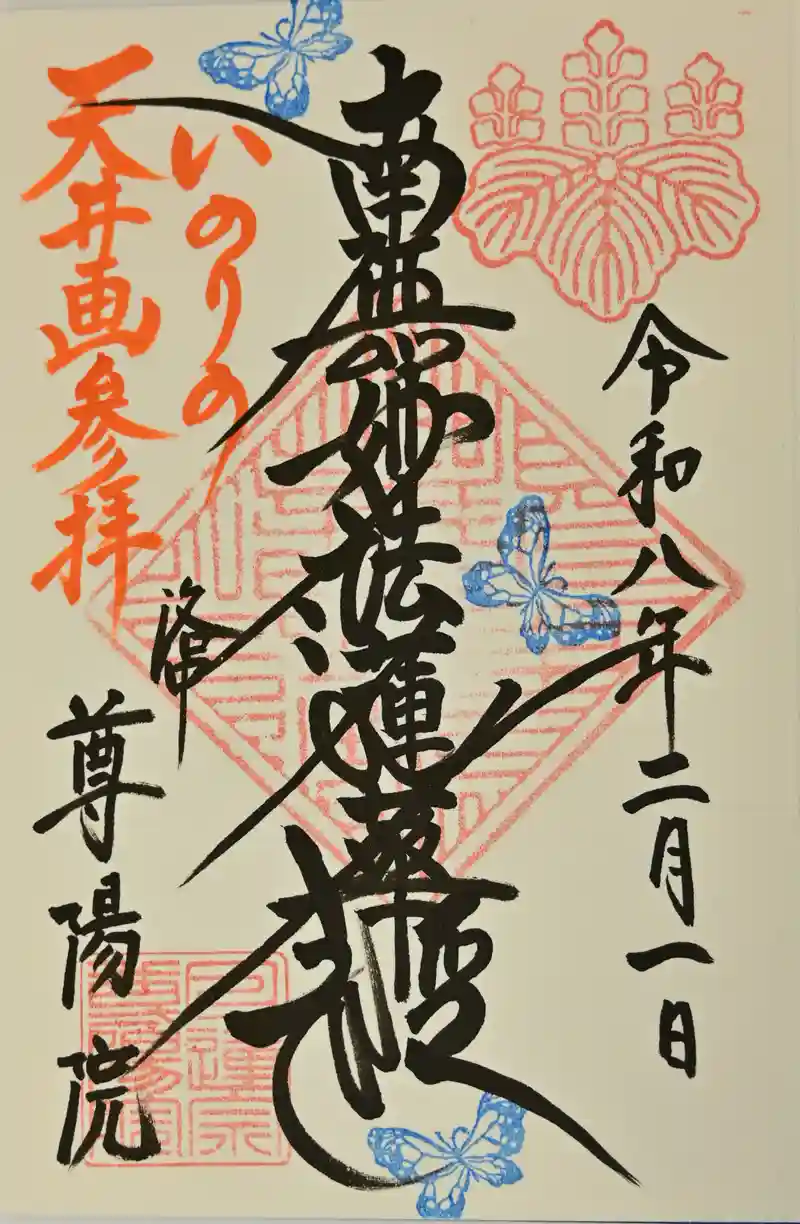 令和八年二月一日
南無妙法蓮華経
いのりの
天井画参拝
洛中
尊陽院
日蓮宗
尊陽院